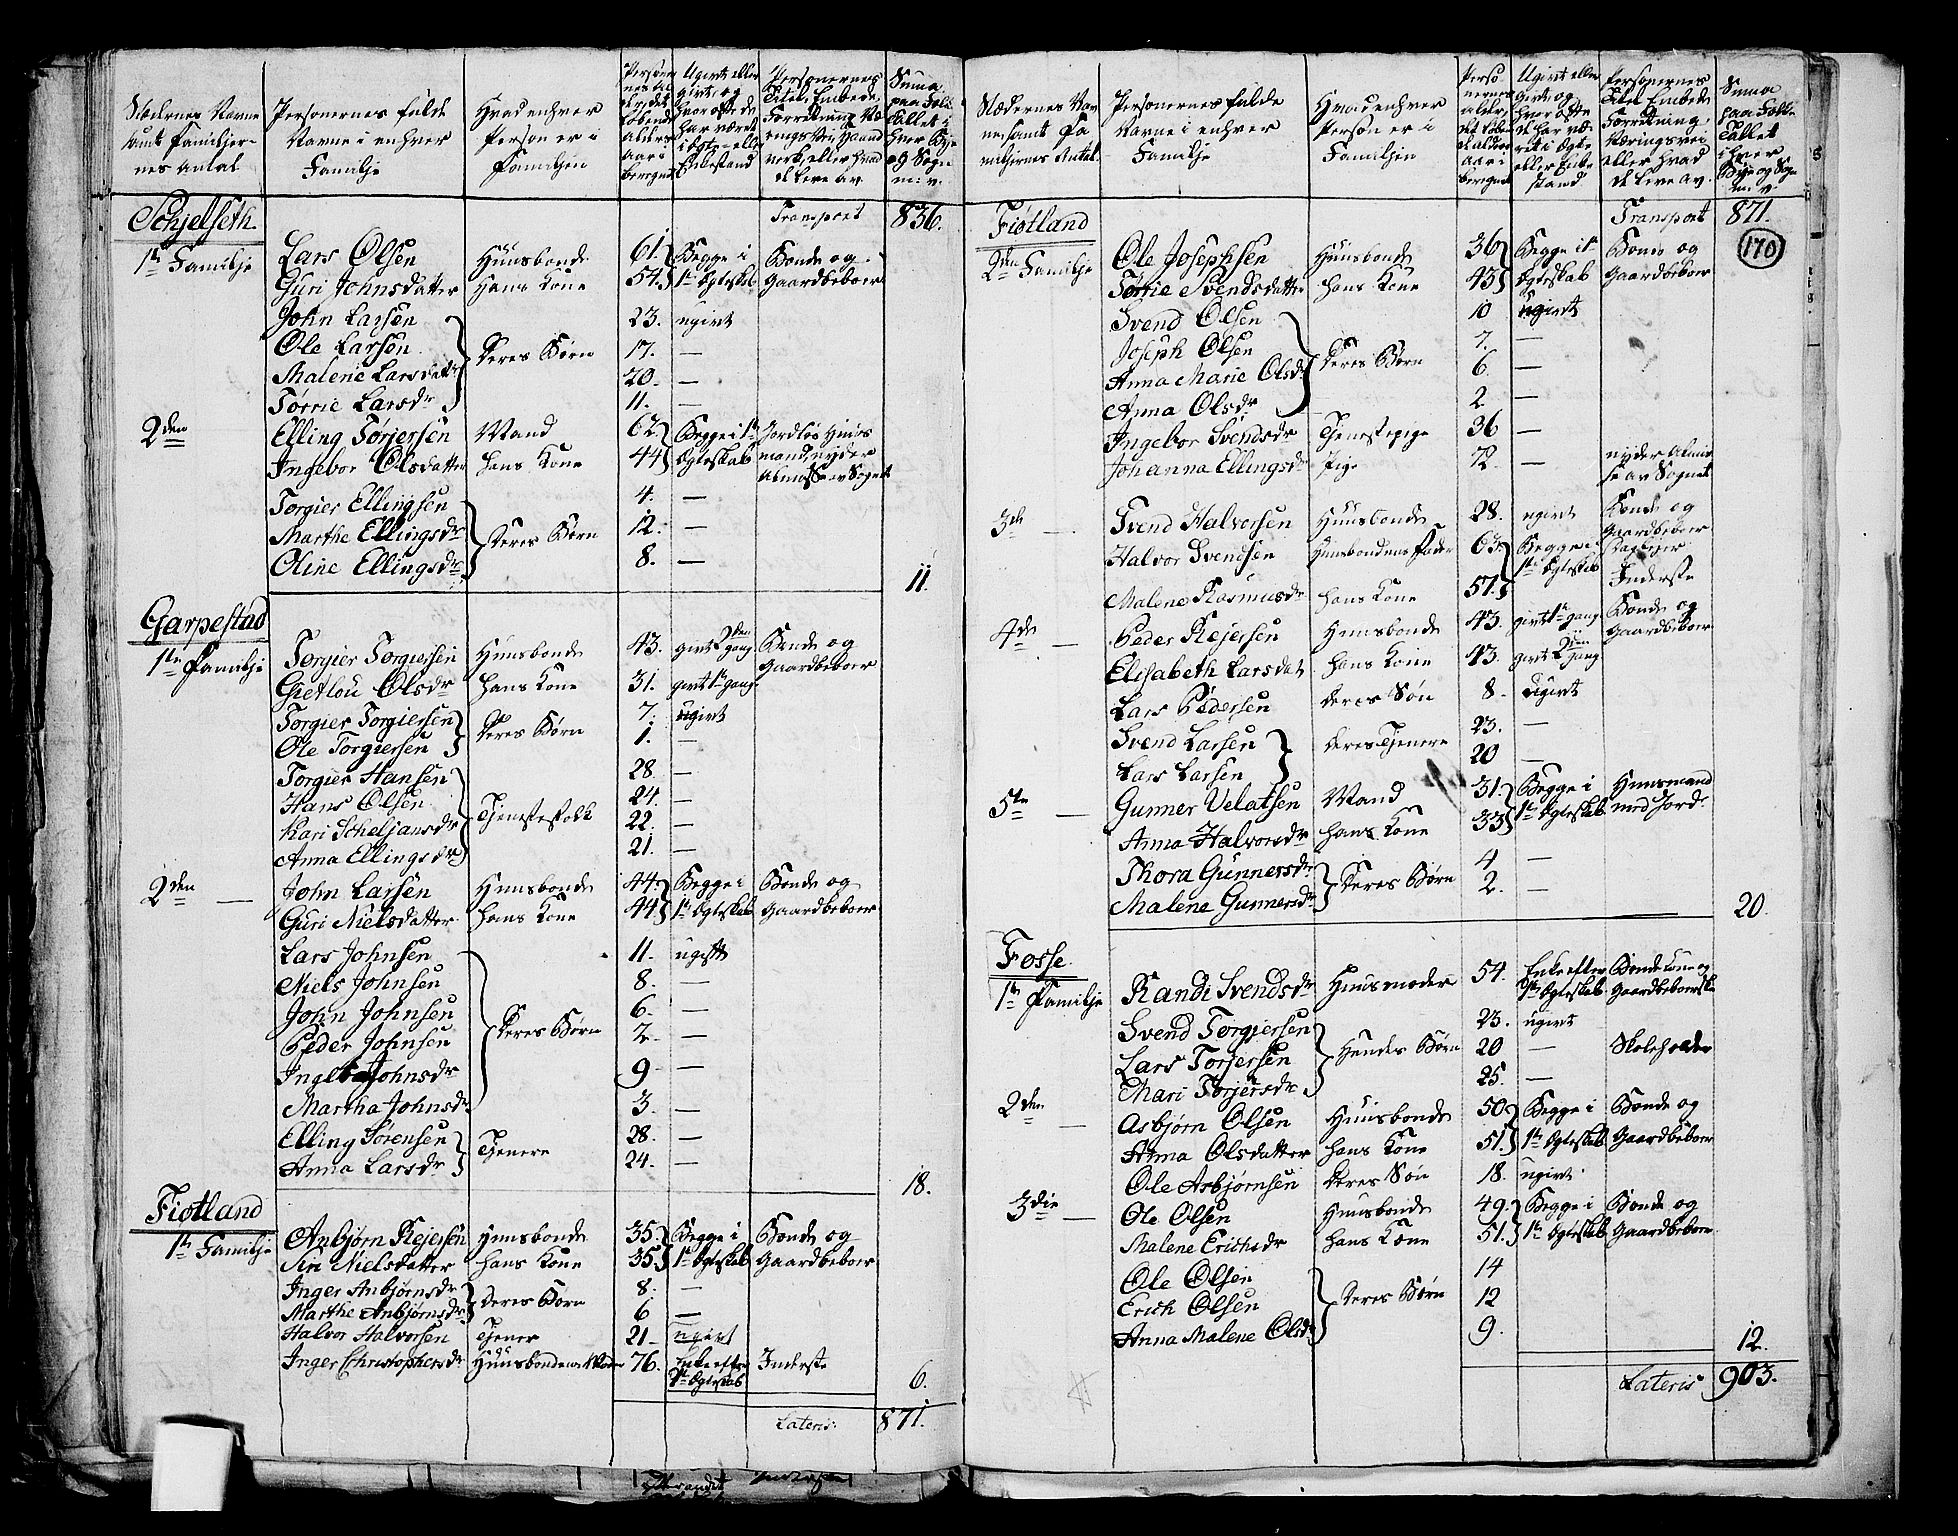 Stædernes Navne samt Familjernes Antal
Personernes fulde Navne i enhver Familje
Hvad enhver Person er i Familjen
Personernes Alder, det løbende Alders aar iberegnet
Ugivt eller givt, og hvor ofte de har været i Ægte- eller Enkestand
Personernes Titel, Embede, Forretning, Næringsvei, Haandværk, eller hvad de leve av
Suma paa Folketallet i hver Bÿe og Sogn m: v.
Schjelseth. Transport 836.
1te Familje Lars Olsen Huusbonde 61. Begge i Bonde og
Guri Johnsdatter Hans Kone 54. 1te Ægteskab Gaardbeboer
John Larsen 23. ugivt
Ole Larsen Deres Børn 17. —
Malene Larsdattr 20. —
Tørrie Larsdr 11. —
2den Elling Tørjersen Mand 62. Begge i 1te Jordløs Huus
Ingebor Olsdatter Hans Kone 44 Ægteskab mand, nyder Almosse av Sognet
Torgier Ellingsen 4. —
Marthe Ellingsdr Deres Børn 12. —
Oline Ellingsdr 8. —
11.
Garpestad
1te Familje Torgier Torgiersen Huusbonde 43. givt 2den gang Bonde og
Gietlou Olsdr Hans Kone 31. givt 1te gang Gaardbeboer
Torgier Torgiersen Deres Børn 7. ugivt
Ole Torgiersen 1. —
Torgier Hansen 28. —
Hans Olsen Tjenestefolk 24. —
Kari Scheljansdr 22. —
Anna Ellingsdr 21. —
2den — John Larsen Huusbonde 44. Begge i Bonde og
Guri Nielsdatter Hans Kone 44 1te Ægteskab Gaardbeboer
Lars Johnsen 11. ugift
Niels Johnsen 8. —
John Johnsen 6. —
Peder Johnsen Deres Børn 2. —
Johnsdr 9 —
Martha Johnsdr 3. —
Elling Sørensen Tjenere 28. —
Anna Larsdr 24. —
18.
Fiotland
1te Familje Anbjørn Rejersen Huusbonde 35. Begge i Bonde og
Siri Nielsdatter Hans Kone 35. 1te Ægteskab Gaardbeboer
Inger Anbjørnsdr Deres Børn 8. —
Marthe Anbjørnsdr 6 —
Halvor Halvorsen Tjener 21 ugivt
Inger Christophersdr Huusbondens Moder 76. Enke efter 1te Ægteskab Inderste
6.
Lateris: 871.
Stædernes Navne, samt Familjernes Antal
Personernes fulde Navne i enhver Familje
Hvad enhver Person er i Familjen
Personernes alder, det løbende alders aar iberegnet
Ugivt eller givt og hvor ofte de har været i Ægte eller Enkestand
Personernes Titel Embede Forretning, Næringsvei eller hvad de leve av.
Suma paa Folketallet i hver Bÿe og Sogn m. v.
Fiotland Transport 871.
170
2den Familje Ole Josephsen Huusbonde 36 Begge i 1te Bonde og
Tørrie Svendsdatter Hans Kone 43 Ægteskab Gaardbeboer
Svend Olsen 10 ugivt
Joseph Olsen Deres Børn 7. —
Anna Marie Olsdr 6 —
Anna Olsdr. 2 —
Ingebor Svendsdr Tjenestepige 36 —
Johanna Ellingsdr Pige 72. — nyder Almisse av Sognet
3de — Svend Halvorsen Huusbonde 28. ugivt Bonde og Gaardbeboer
Halvor Svendsen Huusbondens Fader 63. Begge i
Malene Rasmusdr Hans Kone 57. 1te Ægteskab Inderste
4de — Peder Rejersen Huusbonde 43. givt 1te gang Bonde og
Elisabeth Larsdat Hans Kone 43. givt 2den gang Gaardbeboer
Lars Pedersen Deres Søn 8. ugivt
Svend Larsen Deres Tjenere 23. —
Lars Larsen 20 —
5te — Gunner Velatsen Mand 31. Begge i Huusmand
Anna Halvorsdr Hans Kone 33 1te Ægteskab med Jord.
Thora Gunnersdr Deres Børn 4 —
Malene Gunnersdr 2. —
20.
Fosse.
1te Familje Randi Svendsdr Huusmoder 54. Enke efter 1te Ægteskab Bondekone og Gaardbeboerske
Svend Torgiersen 23. ugivt
Lars Torjersen Hendes Børn 20 — Skoleholder
Mari Torjersdr 25. —
2den — Asbjørn Olsen Huusbonde 50 Begge i Bonde og
Anna Olsdatter Hans Kone 51. 1te Ægteskab Gaardbeboer
Ole Asbjørnsen Deres Søn 18. ugivt
3die — Ole Olsen Huusbonde 49. Begge i Bonde og
Malene Erichsdr Hans Kone 51. 1te Ægteskab Gaardbeboer
Ole Olsen 14
Erich Olsen Deres Børn 12
Anna Malene Olsdr 9.
12.
Lateris 903.